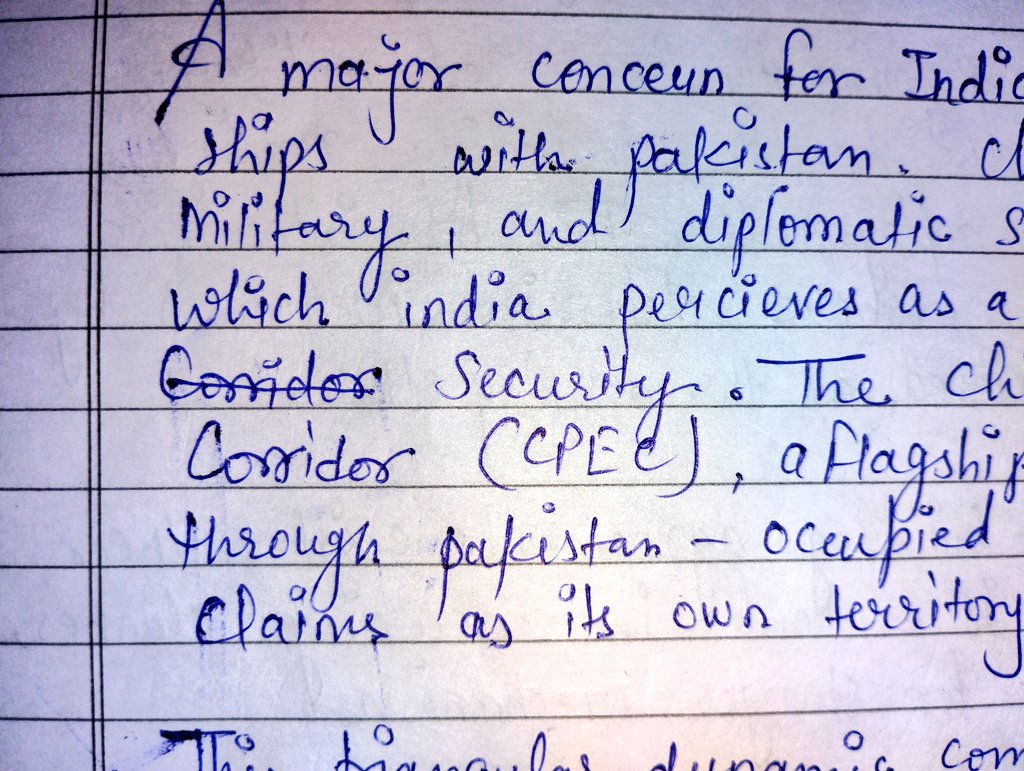 A major concern for India
ships with pakistan.
Military, and diplomatic
which india percieves as a
Corridor Security. The
Corridor (CPEC), a flagship
through pakistan - occupied
Claims as its own territory
This triangular dynamic